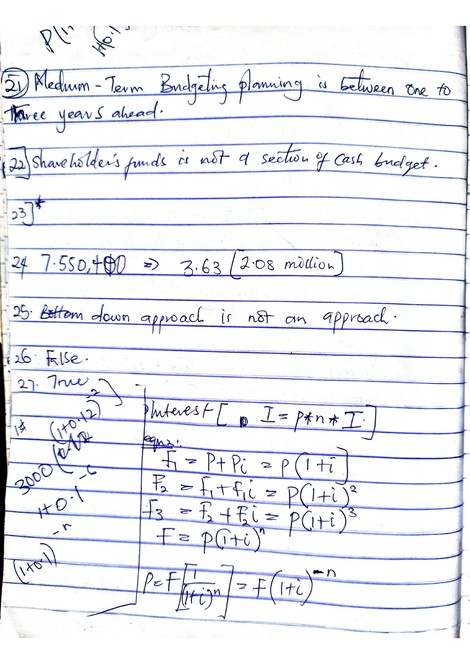 P(1
1+0.1
21) Medium-Term Budgeting planning is between one to
three years ahead.
22] Shareholder's funds is not a section of Cash budget.
23]*
24 7.550,400 => 3.63 [2.08 million]
25. Bottom down approach is not an approach.
26. False.
27. True
(1+0.12)-2
3000
1+0.1
-n
(1+0.1)
Interest [ I = P*n*I.]
eqns:
F1 = P+Pi = P(1+i)
F2 = F1+F1i = P(1+i)2
F3 = F2+F2i = P(1+i)3
F = P(1+i)n
P=F[1/(1+i)n] = F(1+i)-n